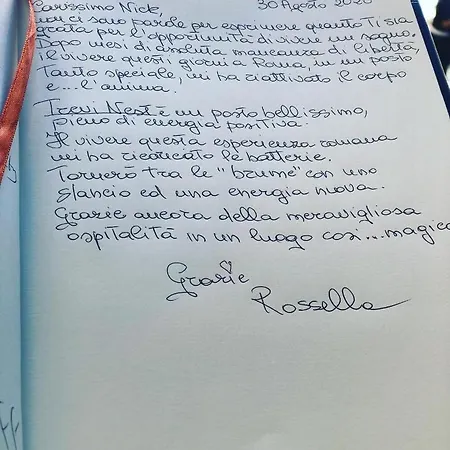 Carissimo Nick, 30 Agosto 2020
non ci sono parole per esprimere quanto Ti sia
grata per l'opportunità di vivere un sogno.
Dopo mesi di assoluta mancanza di libertà,
il vivere questi giorni a Roma, in un posto
tanto speciale, mi ha riattivato il corpo
e...l'anima.
Trevi Nest è un posto bellissimo,
pieno di energia positiva.
Il vivere questa esperienza romana
mi ha ricaricato le batterie.
Tornerò tra le "brume" con uno
slancio ed una energia nuova.
Grazie ancora della meravigliosa
ospitalità in un luogo così...magico
Grazie
Rossella